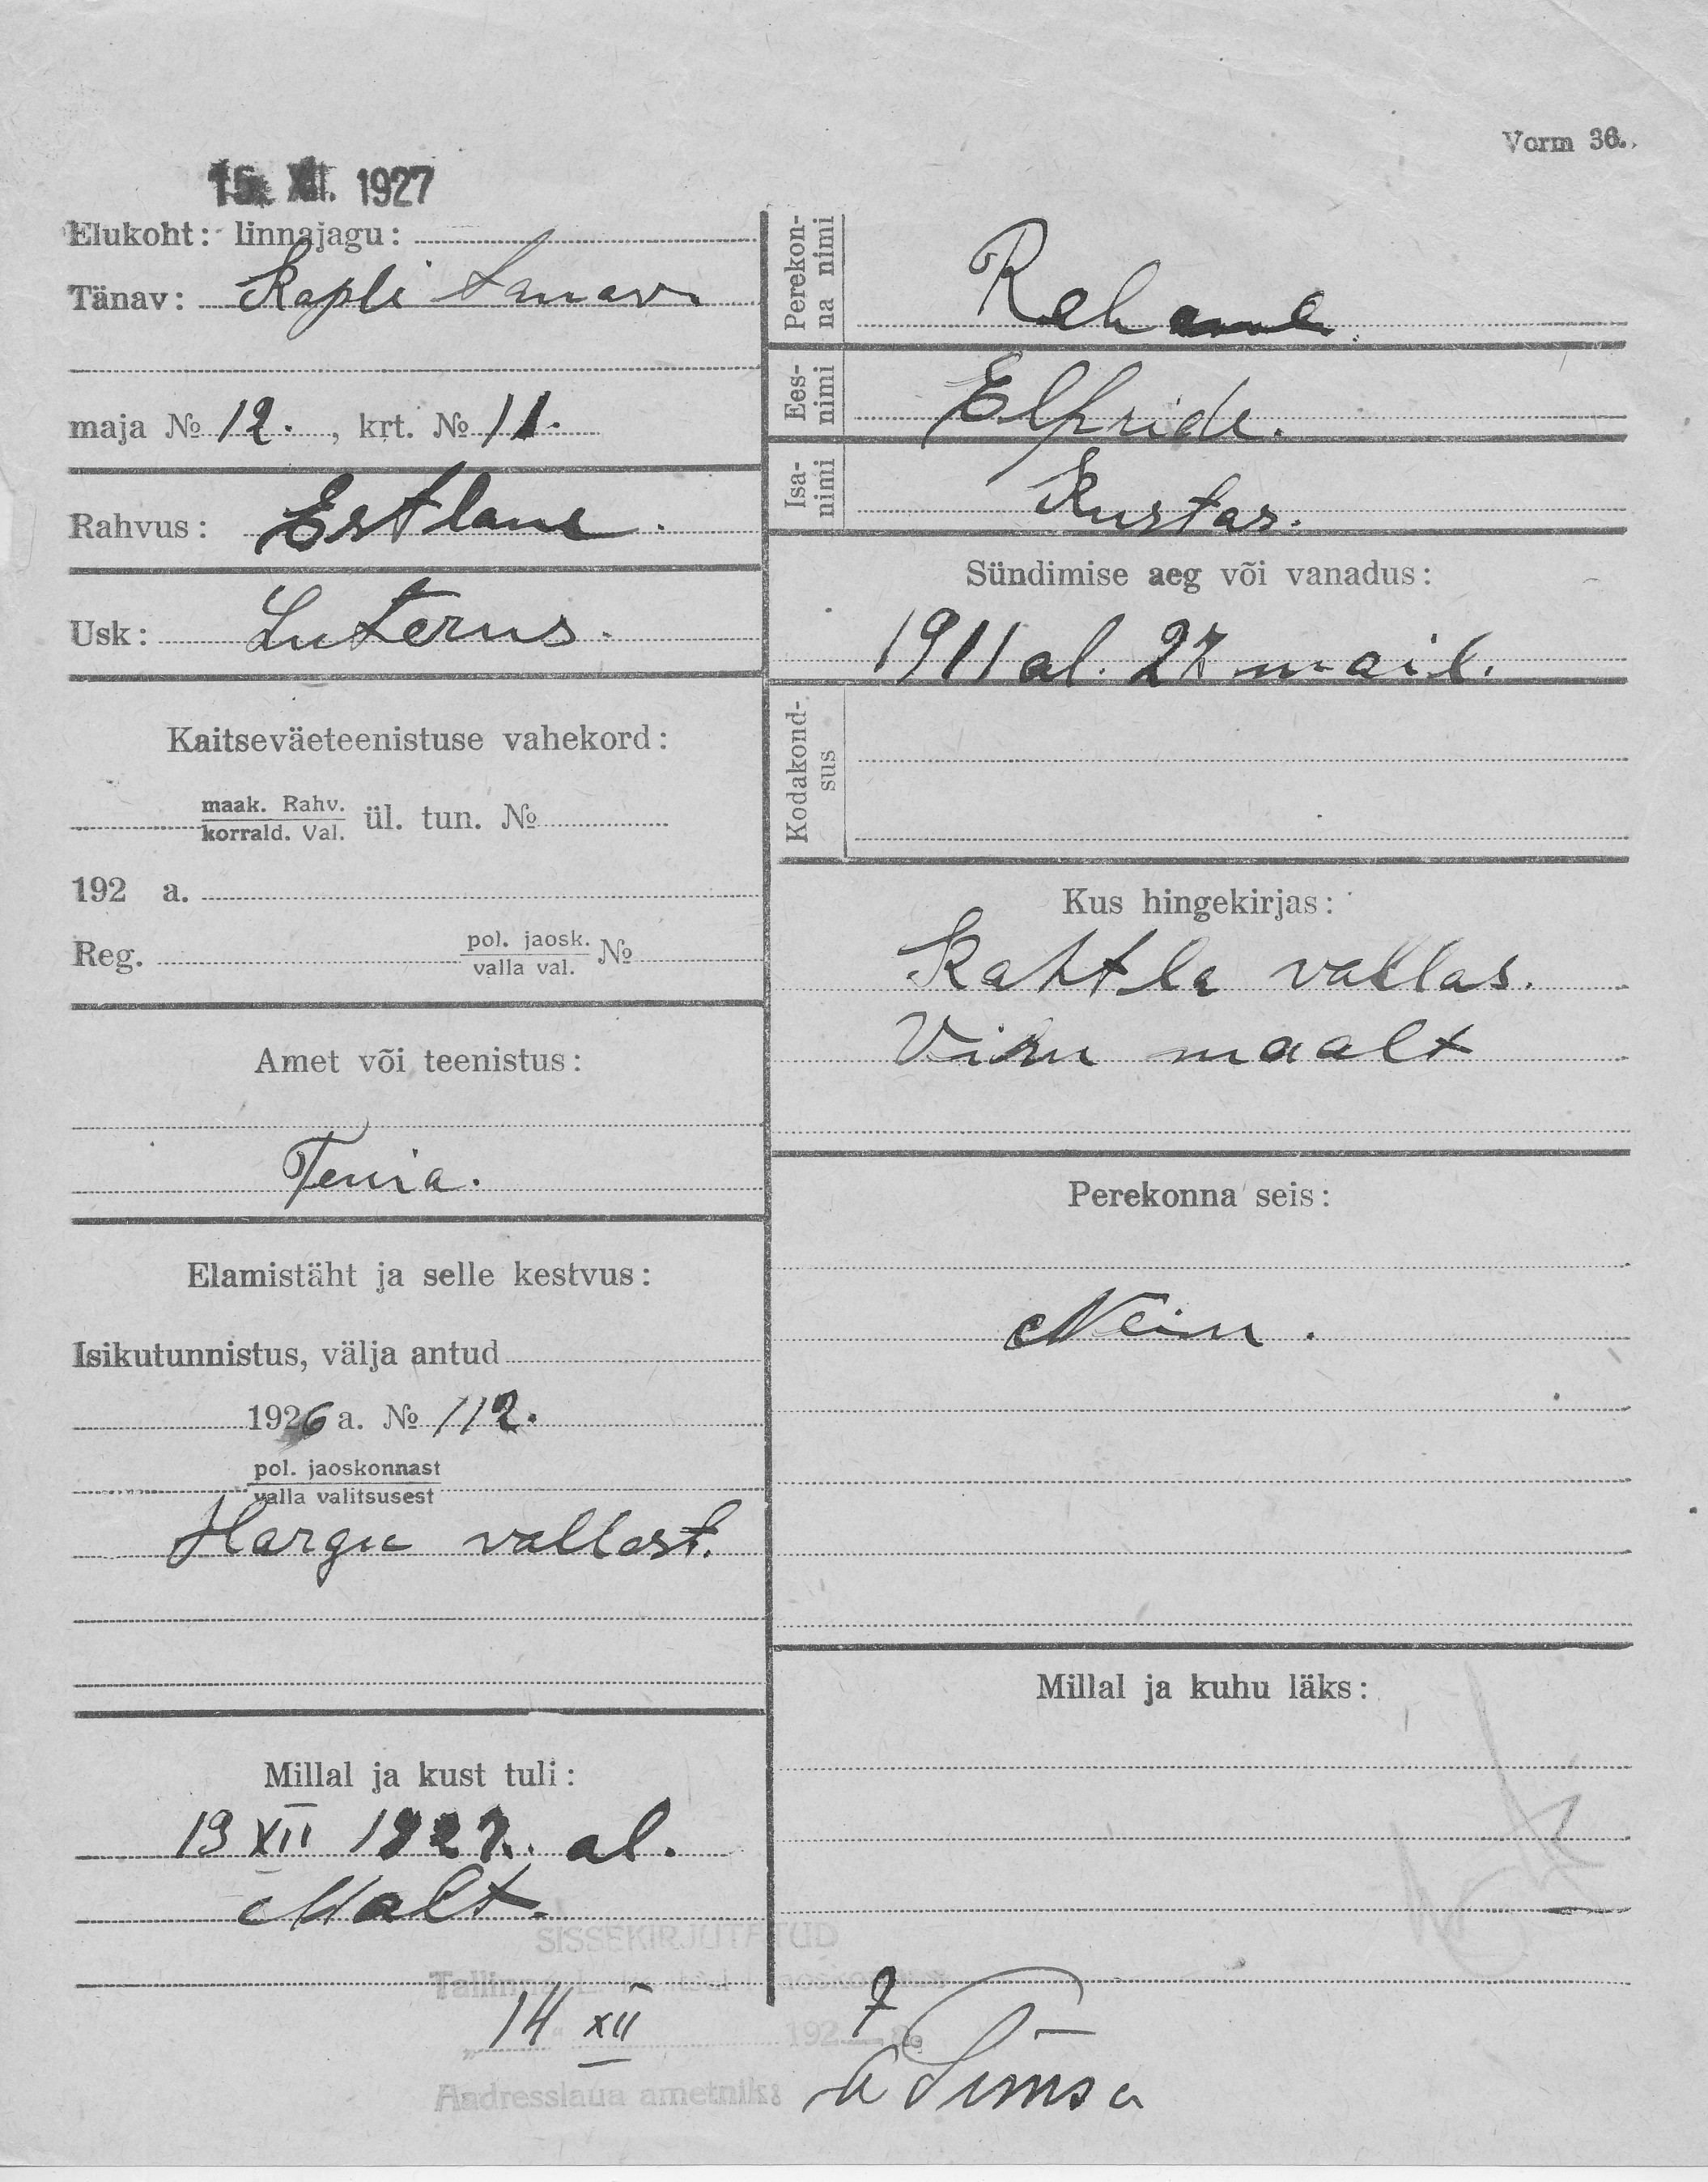 Vorm 36.
15. XII. 1927
Elukoht: linnajagu:
Tänav: Kopli tanav
maja № 12. , krt. № 11.
Rahvus: Estlane.
Usk: Luterus.
Kaitseväeteenistuse vahekord:
maak. Rahv.
korrald. Val. ül. tun. №
192 a.
Reg. pol. jaosk.
valla val. №
Amet või teenistus:
Tenia.
Elamistäht ja selle kestvus:
Isikutunnistus, välja antud
1926 a. № 112.
pol. jaoskonnast
valla valitsusest
Hargu vallast.
Millal ja kust tuli:
13 XII 1927. al.
Malt.
Perekon-
na nimi
Ees-
nimi Elfride.
Isa-
nimi Kustas.
Sündimise aeg või vanadus:
1911 al. 27 mail.
Kodakond-
sus
Kus hingekirjas:
Kahtla vallas.
Viru maalt
Perekonna seis:
Nein.
Millal ja kuhu läks:
SISSEKIRJUTATUD
Tallinna
14 XII 192 7 a.
Andresslaua ametnik: